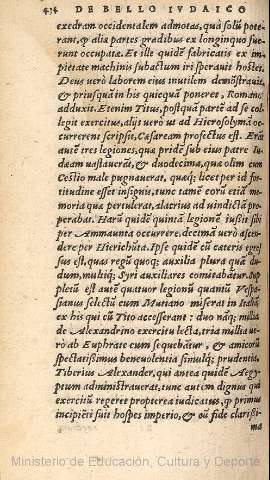 414 DE BELLO IVDAICO
exedram occidentalem admotas, quà solũ pote
rant, & alia partes gradibus ex longinquo fue
runt occupata. Et ille quidẽ fabricatis ex im
petate machinis subactum iri sperauit hostes.
Deus verò laborem eius inutilem demõstrauit,
& priusquã in his quicquã poneret, Romanos
adduxit. Etenim Titus, postquã partẽ ad se col
legit exercitus, alijs verò ut ad Hierosolyma oc
currerent scripsit, Cæsaream profectus est. Erãt
autẽ tres legiones, qua pridẽ sub eius patre Iu
dæam vastauerãt, & duodecima, qua olim cum
Cestio male pugnauerat, quæq; licet per id for
titudine esset insignis, tunc tamẽ corũ etiã me
moria qua pertulerat, alacrius ad vindictã pro
perabat. Harũ quidẽ quintã legionẽ iussit sibi
per Ammaunta occurrere, decimã verò ascen
dere per Hierichũta. Ipse quidẽ cũ cæteris egres
sus est, quas regũ quoq; auxilia plura quã du
dum, multiq; Syri auxiliares comitabãtur. Sup
pletũ est autẽ quatuor legionũ quantũ Vespa
sianus selectũ cum Muriano miserat in Italiã
ex his qui cũ Tito accesserant: duo nãq; milia
de Alexandrino exercitu lecta, tria millia ve
rò ab Euphrate eum sequebãtur, & amicorũ
spectatissimus beneuolentia simulq; prudentia,
Tiberius Alexander, qui antea quidẽ Aegy
ptum administrauerat, tunc autem dignus qui
exercitũ regeret propterea iudicatus, q primus
incipiẽti suit hospes imperio, & cũ fide clarissi
ma
Ministerio de Educación, Cultura y Deporte